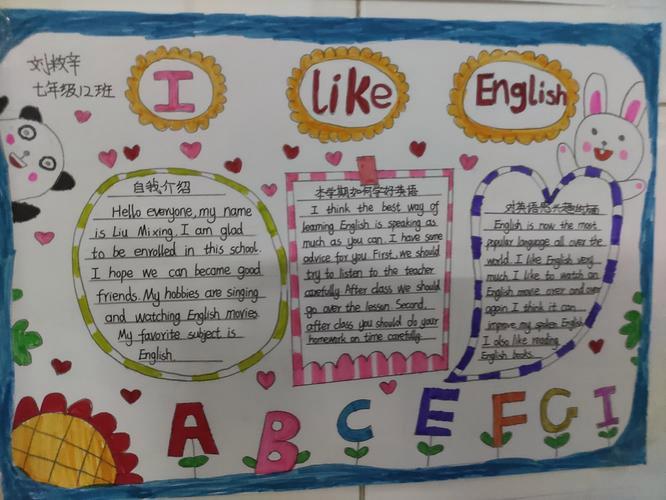 七年级12班
I
like
English
自我介绍
Hello everyone, my name
is Liu Mixing. I am glad
to be enrolled in this school.
I hope we can become good
friends. My hobbies are singing
and watching English movies.
My favorite subject is
English.
本学期如何学好英语
I think the best way of
learning English is speaking as
much as you can. I have some
advice for you. First, we should
try to listen to the teacher
carefully. After class we should
go over the lesson. Second,
after class you should do your
homework on time carefully.
对英语感兴趣的
English is now the most
popular language all over the
world. I like English very
much. I like to watch an
English movie over and over
again. I think it can
improve my spoken English.
I also like reading
English books.
A B C E F G I